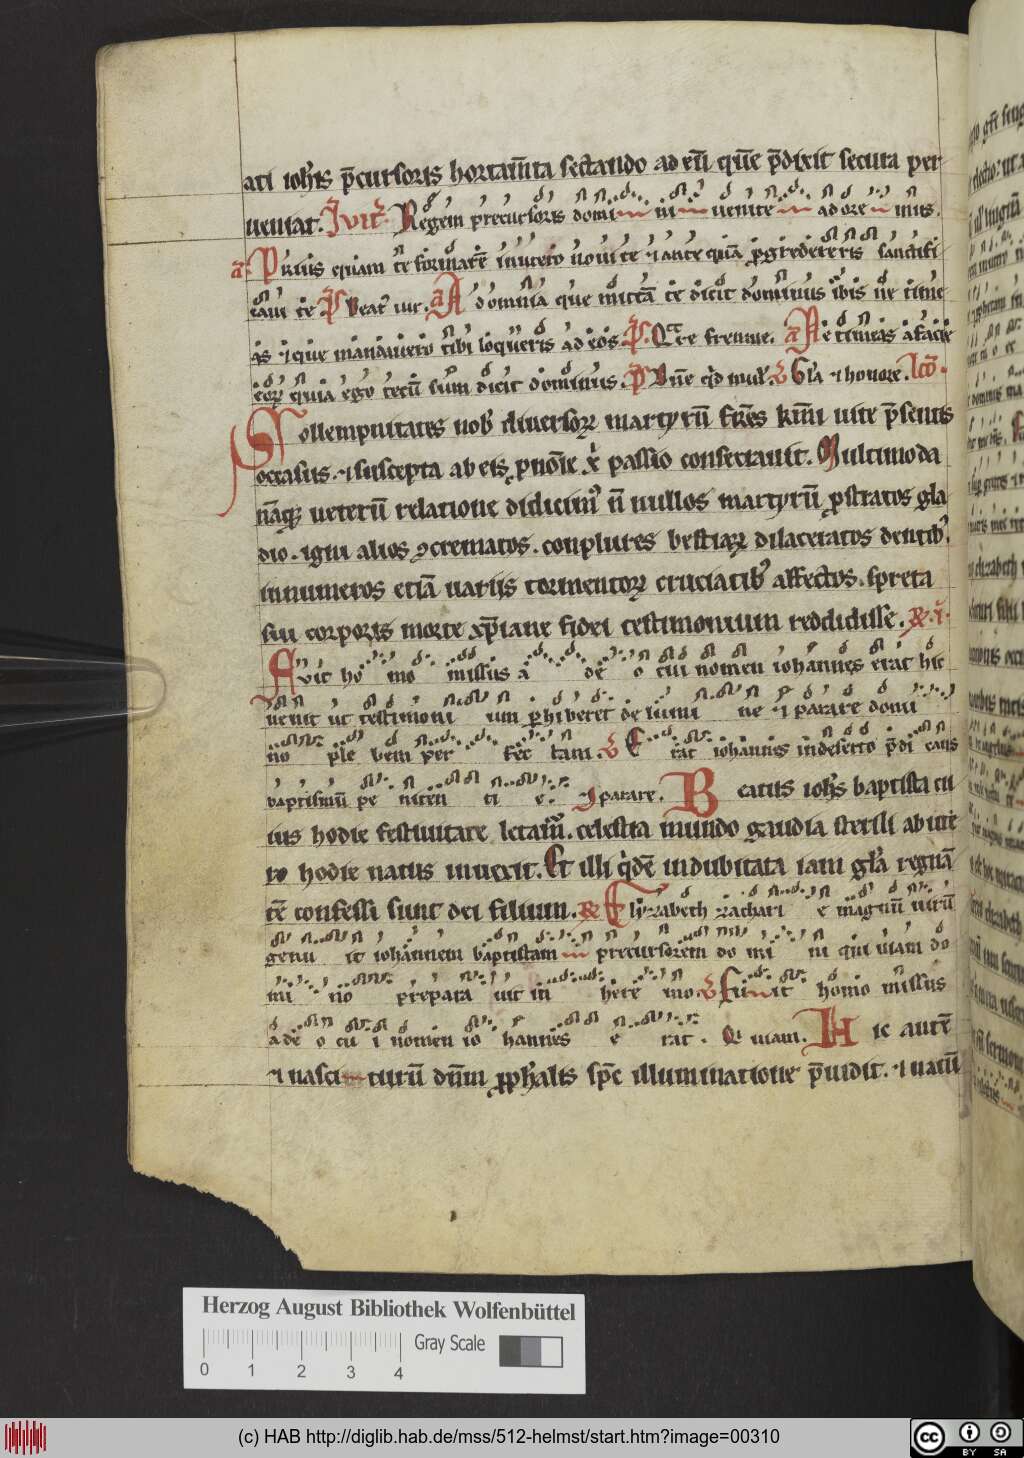 ati ioh̄is p̄cursoris hortam̄ta sectando ad eū quē p̄dixit secuta per
ueniat. Jnuit̄. Regem precursoris domi ni uenite adore mus.
a Prius quam te formarē in utero noui te ⁊ ante quā ꝓgredereris sanctifi
caui te p̄s Beat᷒ uir. a A d omnia que mittā te dicit dominus ibis ne time
as ⁊ que mandauero tibi loqueris ad eos. p̄s. Quare fremue. a Ne timeas a facie
eoꝝ quia ego tecū sum dicit dominus. p̄s Dn̄e qd mult᷒. v Gl̄a ⁊ honore. lc̄o.
Sollempnitates nob᷒ diuersoꝝ martyrū fr̄es km̄i uite p̄sentis
occasus. ⁊ suscepta ab eis ꝓ noīe xp̄i passio consecrauit. Multimoda
nāqꝫ ueterū relatione didicim᷒ n̄ nullos martyrū ꝓstratos gla
dio. igni alios ꝯcrematos. conplures bestiaꝝ dilaceratos dentib᷒.
innumeros etiā uarijs tormentoꝝ cruciatib᷒ affectos. spreta
sui corporis morte xp̄iane fidei testimonium reddidisse. R. i.
Fuit ho mo missus a de o cui nomen iohannes erat hic
uenit ut testimoni um ꝑhiberet de lumi ne ⁊ parare domi
no ple bem per fec tam. v E rat iohannes in deserto p̄di cans
baptismū pe niten ti e. ⁊ parare. Beatus ioh̄s baptista cu
ius hodie festiuitate letam᷒. celestia mundo gaudia sterili ab ute
ro hodie natus inuexit. Et illi qidē indubitata iam gl̄a regnā
tē confessi sunt dei filium. R Elyzabeth zachari e magnū uirū
genu it iohannem baptistam precursorem do mi ni qui uiam do
mi no prepara uit in here mo. v Fuit homo missus
a de o cu i nomen io hannes e rat. Q uiam. Hic autē
⁊ nasciturū dn̄m ꝓph̄alis sp̄c illuminatione p̄uidit. ⁊ natū
Herzog August Bibliothek Wolfenbüttel
Gray Scale
0 1 2 3 4
(c) HAB http://diglib.hab.de/mss/512-helmst/start.htm?image=00310
cc BY SA